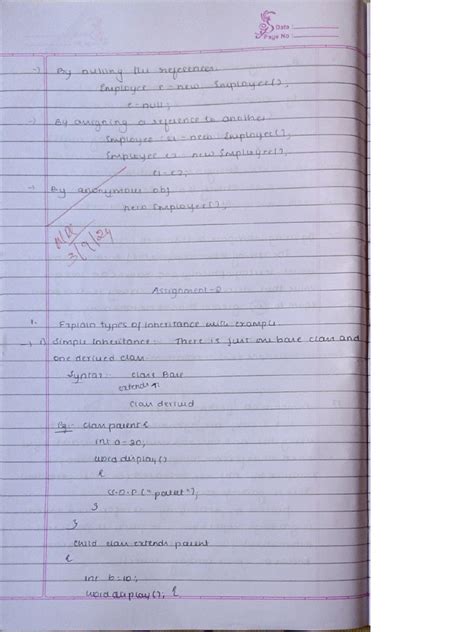 Date :
Page No :
-) By nulling the references
Employee e = new Employee();
e = null;
-) By assigning a reference to another
Employee e1 = new Employee();
Employee e2 = new Employee();
e1 = e2;
-) By anonymous obj
new Employee();
3/9/24
Assignment-2
1. Explain types of inheritance with example.
→ 1) Simple Inheritance: There is just one base class and
one derived class
Syntax: class Base
extends
class derived
Eg:- class parent {
int a = 20;
void display()
{
S.O.P ("parent");
}
}
child class extends parent
{
int b = 10;
void display(); {